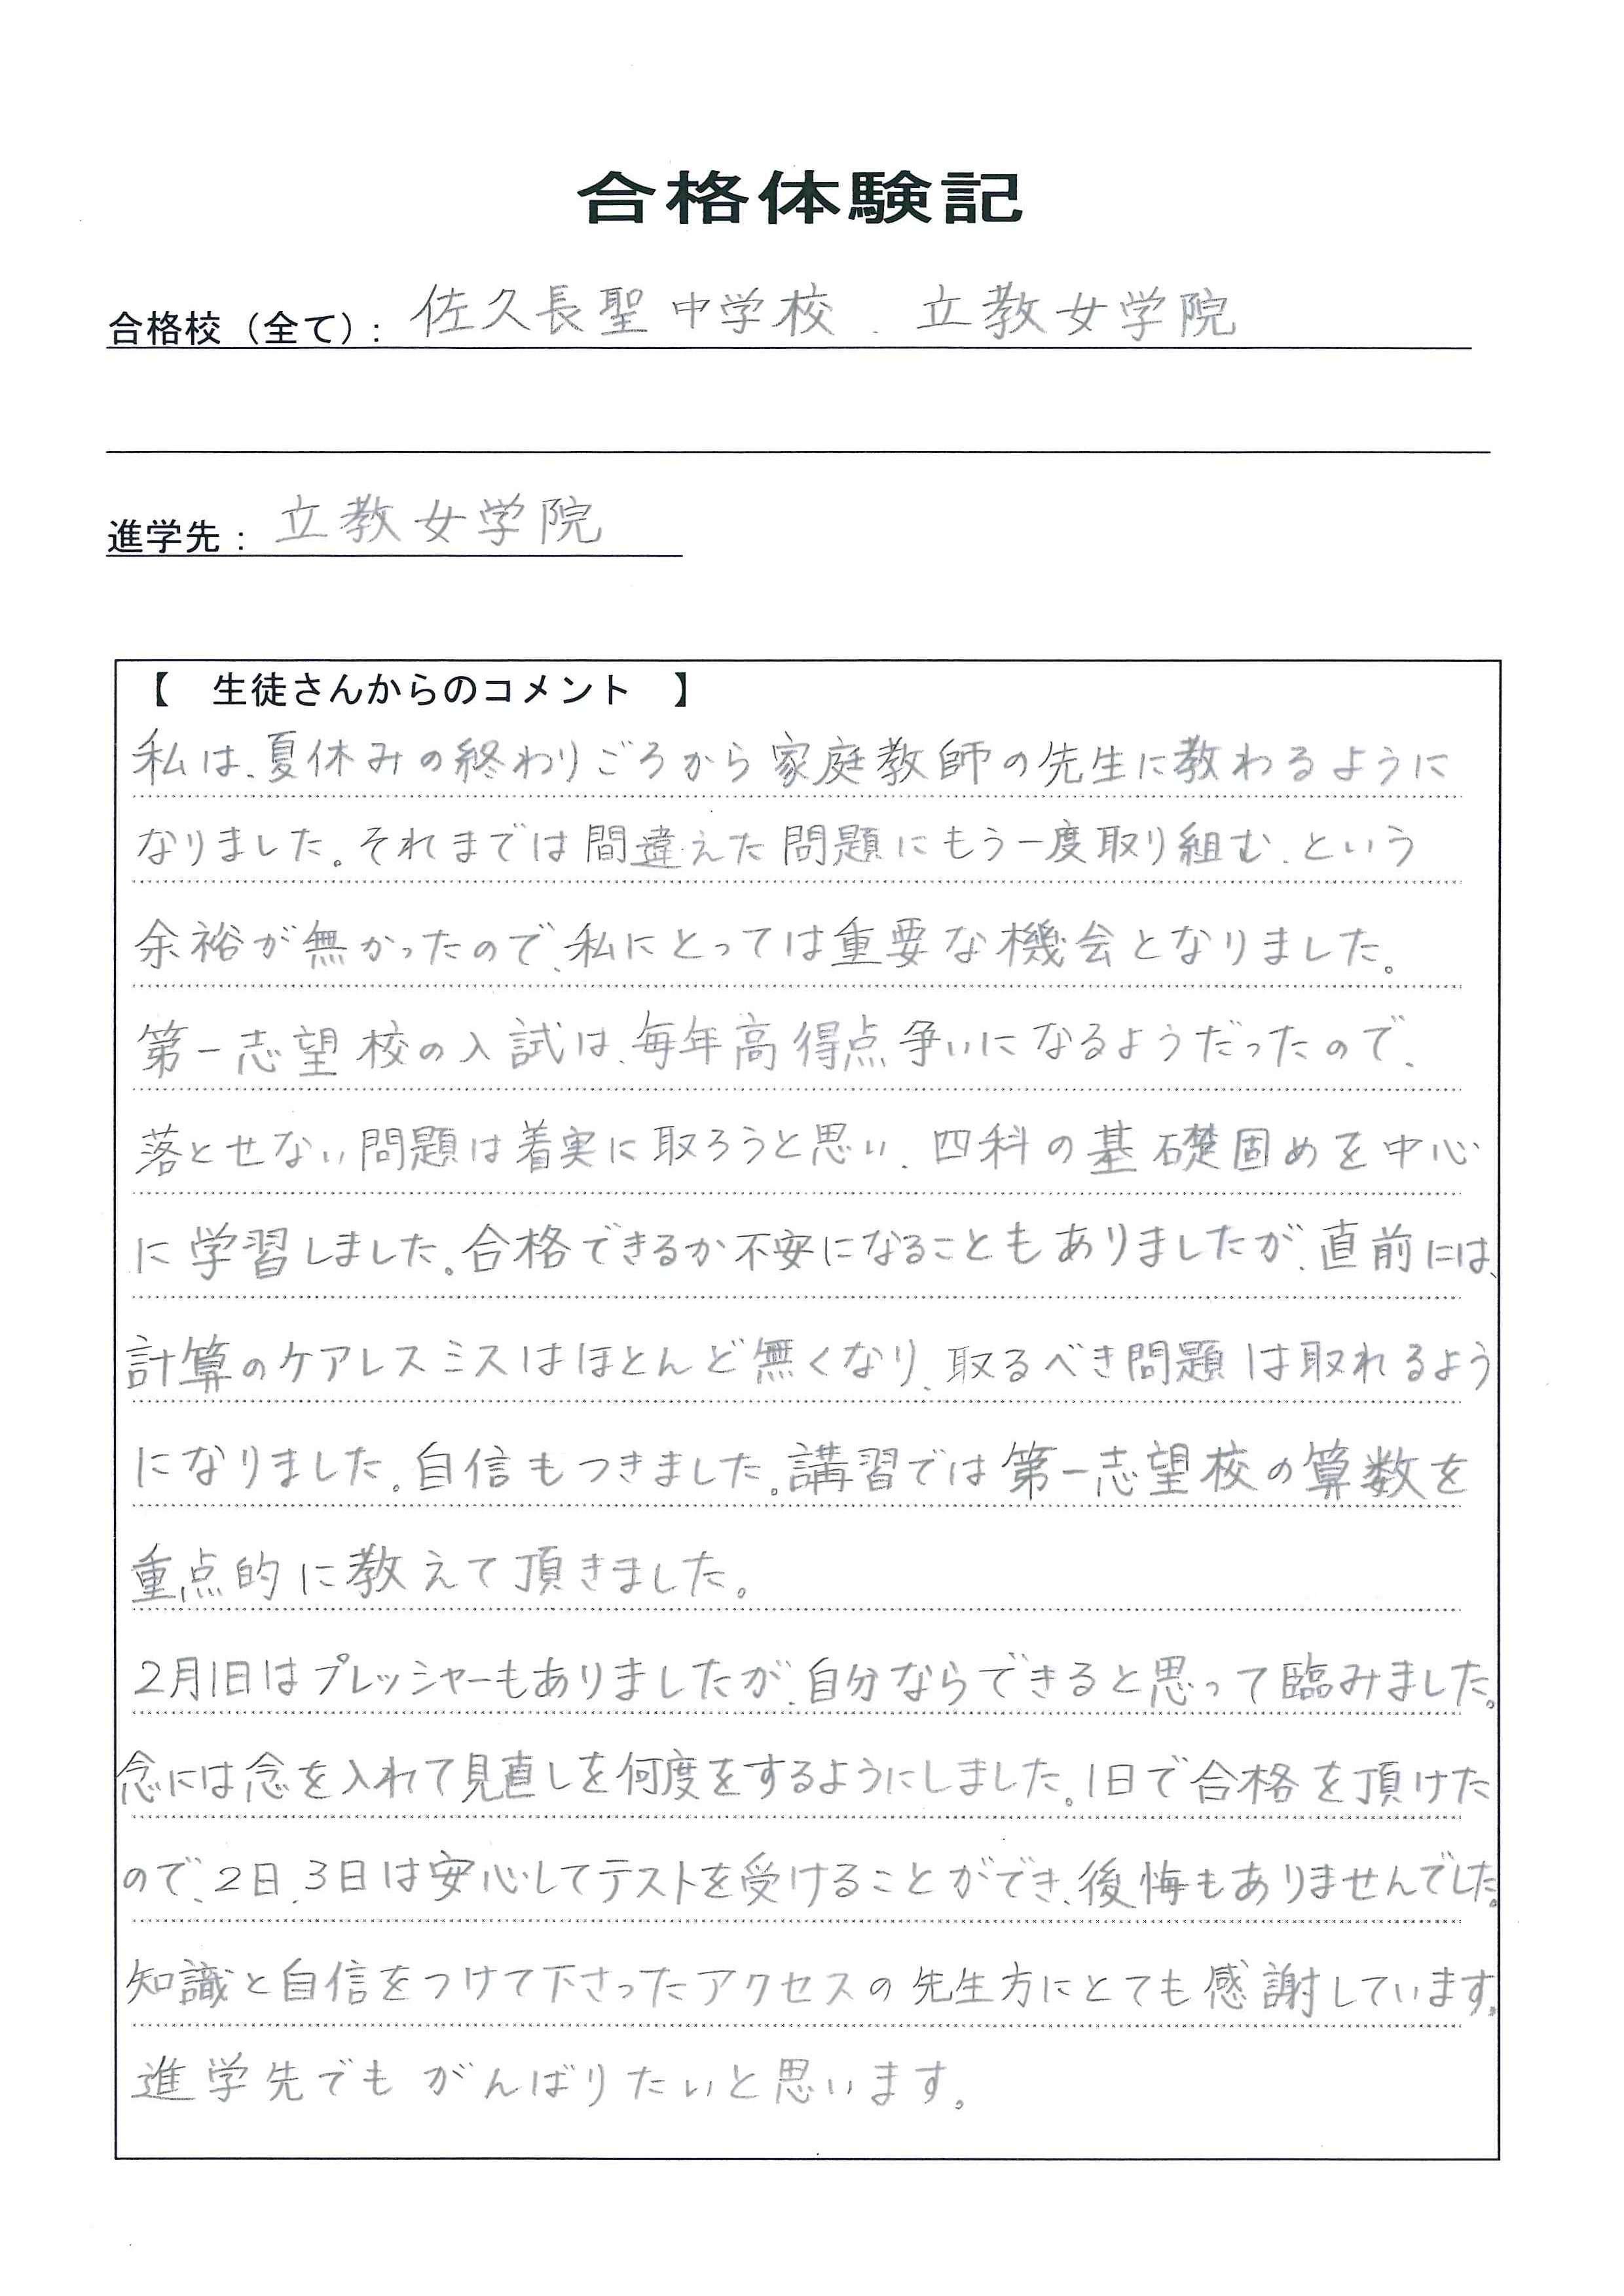 合格体験記
合格校（全て）: 佐久長聖中学校、立教女学院
進学先: 立教女学院
【　生徒さんからのコメント　】
私は、夏休みの終わりごろから家庭教師の先生に教わるように
なりました。それまでは間違えた問題にもう一度取り組む、という
余裕が無かったので、私にとっては重要な機会となりました。
第一志望校の入試は、毎年高得点争いになるようだったので、
落とせない問題は着実に取ろうと思い、四科の基礎固めを中心
に学習しました。合格できるか不安になることもありましたが、直前には、
計算のケアレスミスはほとんど無くなり、取るべき問題は取れるよう
になりました。自信もつきました。講習では第一志望校の算数を
重点的に教えて頂きました。
2月1日はプレッシャーもありましたが、自分ならできると思って臨みました。
念には念を入れて見直しを何度をするようにしました。1日で合格を頂けた
ので、2日、3日は安心してテストを受けることができ、後悔もありませんでした。
知識と自信をつけて下さったアクセスの先生方にとても感謝しています。
進学先でもがんばりたいと思います。